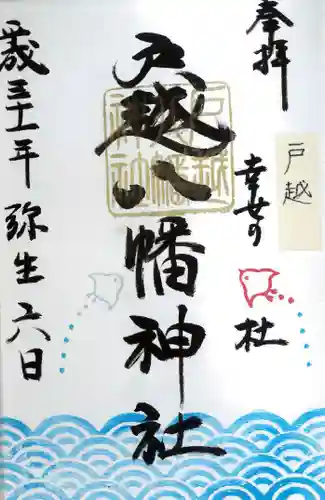 奉拝
戸越
幸せの杜
戸越八幡神社
戸越
八幡
神社
平成三十一年弥生六日